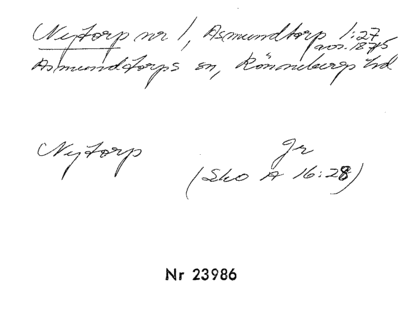 Nytorp nr 1, Asmundtorp 1:27
nov. 1875
Asmundstorps sn, Rönnebergs hd
Nytorp Jr
(Sko A 16:28)
Nr 23986